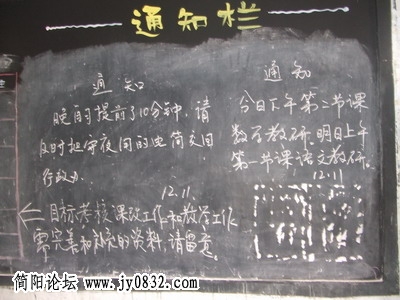 通知栏
通 知
晚自习提前了10分钟,请
及时
12.11
目标考核 课改工作和教学工作
需完善和补充的资料,请留意。
通 知
今日下午第二节课
数学教研。明日上午
第一节课语文教研。
12.11
简阳论坛 www.jy0832.com